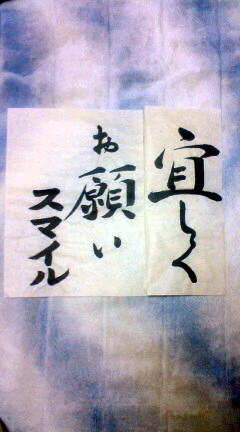 宜しく
お願い
スマイル